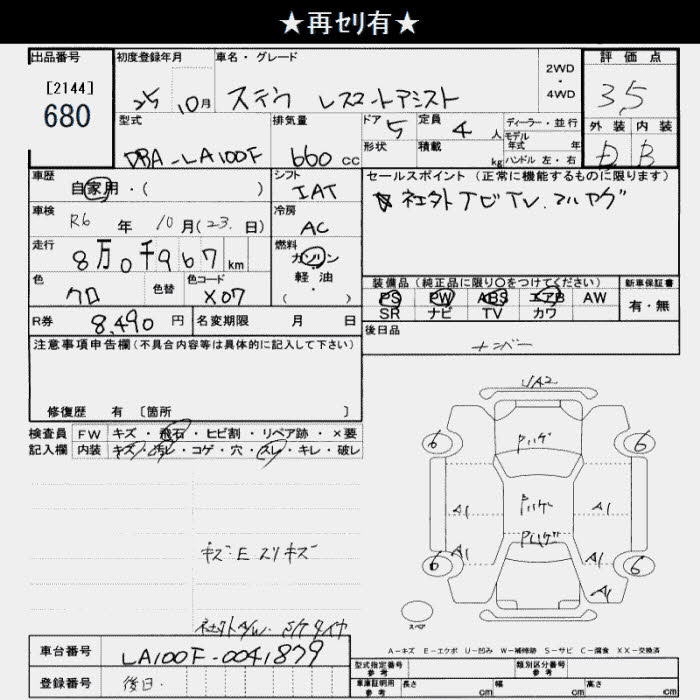 ★再ｾﾘ有★
出品番号
[2144]
680
初度登録年月
25 10月
車名・グレード
ステラ Lスマートアシスト
2WD
・
4WD
評価点
3.5
外装 内装
D B
型式
DBA-LA100F
排気量
660 cc
ドア 5
形状
定員 4 人
積載 kg
ディーラー・並行
モデル
年式 年
ハンドル 左・右
車歴
自家用・( )
シフト
IAT
車検
R6 年 10月(23.日)
冷房
AC
走行
8万0千967 km
燃料
ガソリン
軽油
・
( )
色
クロ
色替
色コード
X07
R券 8,490 円
名変期限 月 日
セールスポイント (正常に機能するものに限ります)
社外ナビTV.アルヤグ
装備品 (純正品に限り○をつけてください)
PS PW ABS エアB AW
SR ナビ TV カワ
新車保証書
有・無
後日品
ナンバー
注意事項申告欄(不具合内容等は具体的に記入して下さい)
修復歴 有 [箇所 ]
検査員
記入欄
FW キズ・飛石・ヒビ割・リペア跡・×要
内装 キズ・汚レ・コゲ・穴・スレ・キレ・破レ
キズ・E スリキズ
社外A/W. S/Tタイヤ
UA2
Pハゲ
6 6
Pハゲ
A1 A1
Pハゲ
A1 A1
6 6
A1
スペア
A-キズ E-エクボ U-凹み W-補修跡 S-サビ C-腐食 XX-交換済
車台番号
LA100F-0041879
登録番号
後日.
型式指定番号
参考
類別区分番号
参考
車庫証明用
参考
長さ cm 幅 cm 高さ cm